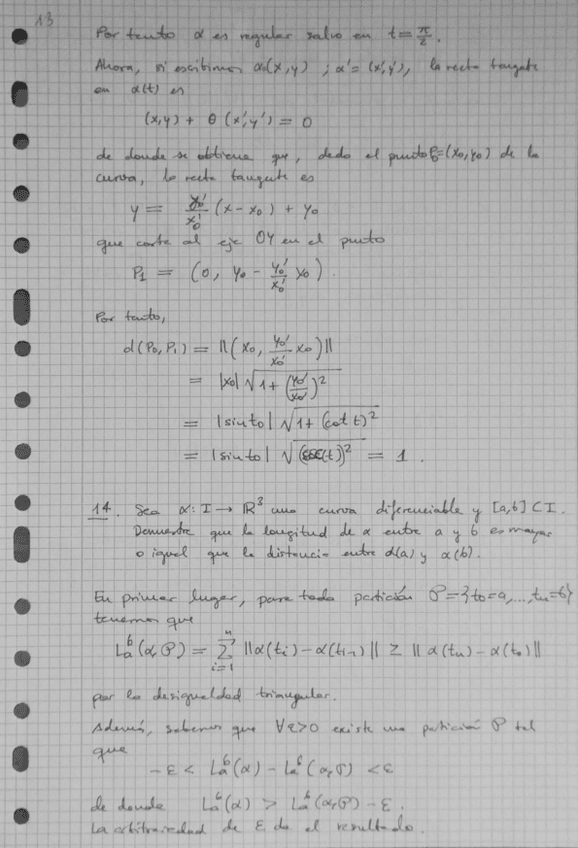 13
Por tanto α es regular salvo en t = π/2.
Ahora, si escribimos α=(x,y) ; α' = (x',y'), la recta tangente
en α(t) es
(x,y) + θ (x',y') = 0
de donde se obtiene que, dado el punto P₀=(x₀,y₀) de la
curva, la recta tangente es
y = y₀'/x₀' (x - x₀) + y₀
que corta al eje OY en el punto
P₁ = (0, y₀ - y₀'/x₀' x₀).
Por tanto,
d(P₀,P₁) = ||(x₀, y₀'/x₀' x₀)||
= |x₀| √(1 + (y₀'/x₀')²)
= |sin t₀| √(1 + (cot t)²)
= |sin t₀| √((csc(t))²) = 1.
14. Sea α: I → ℝ³ una curva diferenciable y [a,b] ⊂ I.
Demuestre que la longitud de α entre a y b es mayor
o igual que la distancia entre α(a) y α(b).
En primer lugar, para toda partición P = {t₀=a,...,tₙ=b}
tenemos que
Lₐᵇ(α,P) = Σᵢ₌₁ⁿ ||α(tᵢ) - α(tᵢ₋₁)|| ≥ ||α(tₙ) - α(t₀)||
por la desigualdad triangular.
Además, sabemos que ∀ε>0 existe una partición P tal
que
-ε < Lₐᵇ(α) - Lₐᵇ(α,P) < ε
de donde Lₐᵇ(α) > Lₐᵇ(α,P) - ε.
La arbitrariedad de ε da el resultado.